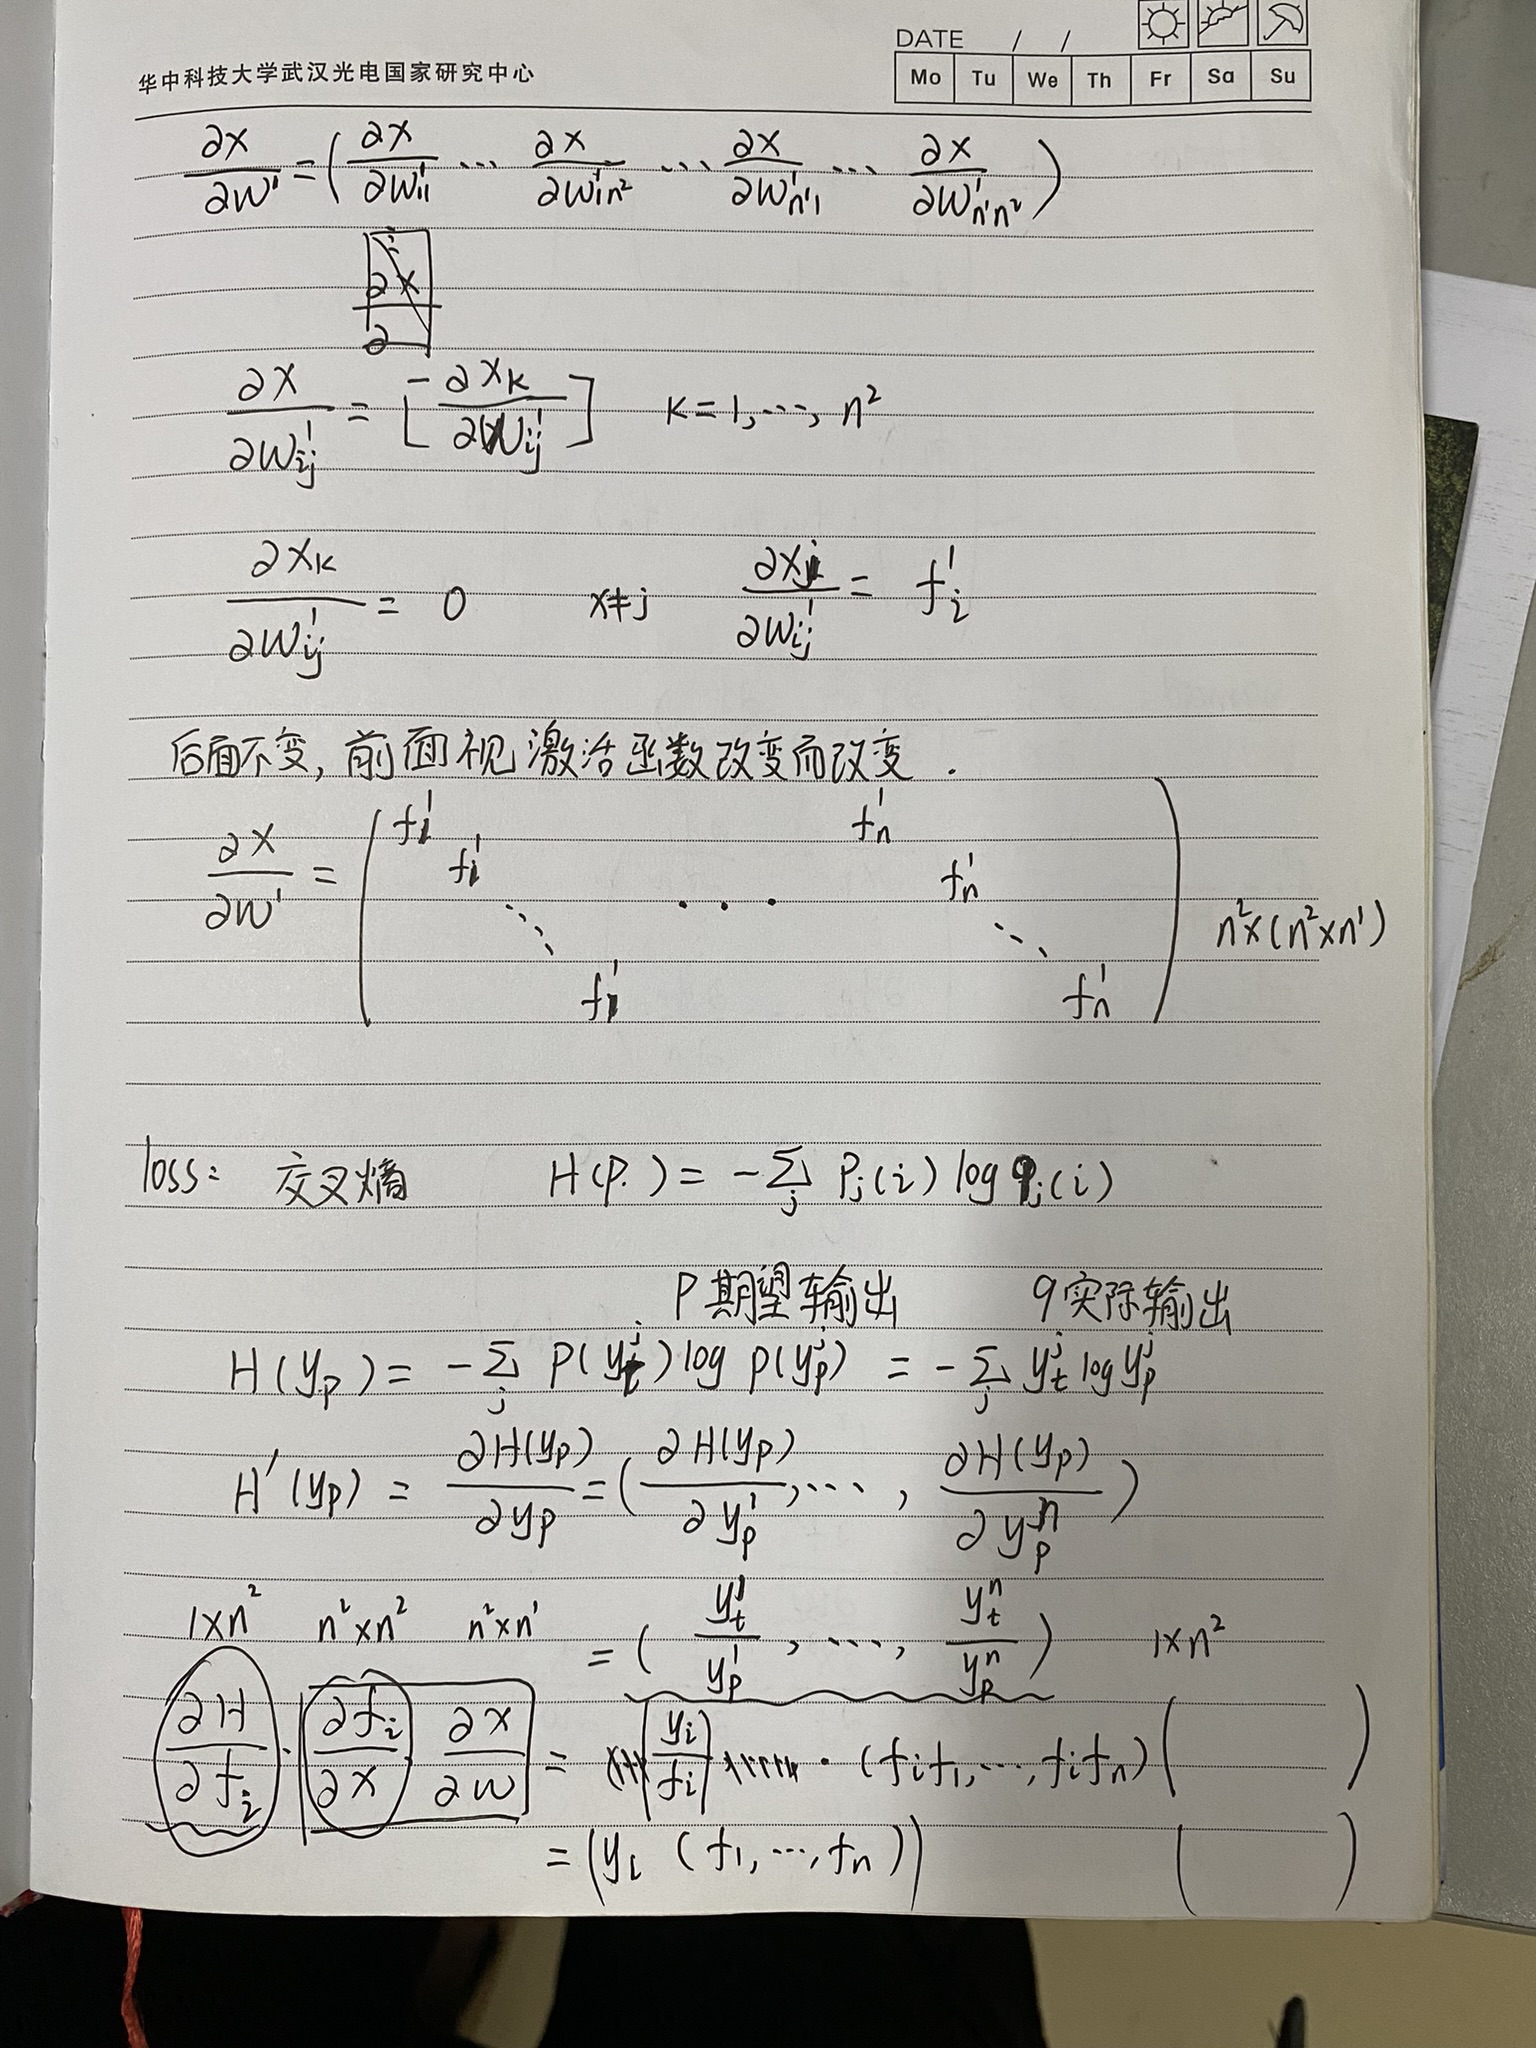 DATE / /
华中科技大学武汉光电国家研究中心
Mo Tu We Th Fr Sa Su
∂x/∂w¹ = (∂x/∂w¹₁₁ ... ∂x/∂w¹₁ₙ² ... ∂x/∂w¹ₙ¹₁ ... ∂x/∂w¹ₙ¹ₙ²)
∂x/∂w¹ᵢⱼ = [∂xₖ/∂w¹ᵢⱼ] k=1,...,n²
∂xₖ/∂w¹ᵢⱼ = 0 x≠j ∂xⱼ/∂w¹ᵢⱼ = f¹ᵢ
后面不变,前面视激活函数改变而改变.
f¹₁ f¹ₙ
f¹₁ f¹ₙ
∂x/∂w¹ = ( ⋱ ... ⋱ ) n²×(n²×n¹)
f¹₁ f¹ₙ
loss: 交叉熵 H(p. ) = -∑ⱼ Pⱼ(i) log qⱼ(i)
P期望输出 q实际输出
H(yₚ) = -∑ⱼ P(yₜʲ) log p(yₚʲ) = -∑ⱼ yₜʲ log yₚʲ
H'(yₚ) = ∂H(yₚ)/∂yₚ = (∂H(yₚ)/∂yₚ¹, ..., ∂H(yₚ)/∂yₚⁿ)
1×n² n²×n² n²×n¹ = (yₜ¹/yₚ¹, ..., yₜⁿ/yₚⁿ) 1×n²
∂H/∂fᵢ · ∂fᵢ/∂x ∂x/∂w = yᵢ/fᵢ · (fᵢf₁, ..., fᵢfₙ) ( )
= (yᵢ (f₁, ..., fₙ)) ( )